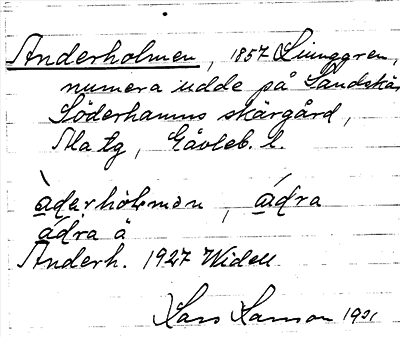 Anderholmen, 1857 Ljunggren,
numera udde på Sandskär
Söderhamns skärgård,
Ala tg, Gävleb. l.
àdarhòlmən, ádra
ádra å
Anderh. 1927 Widell
Lars